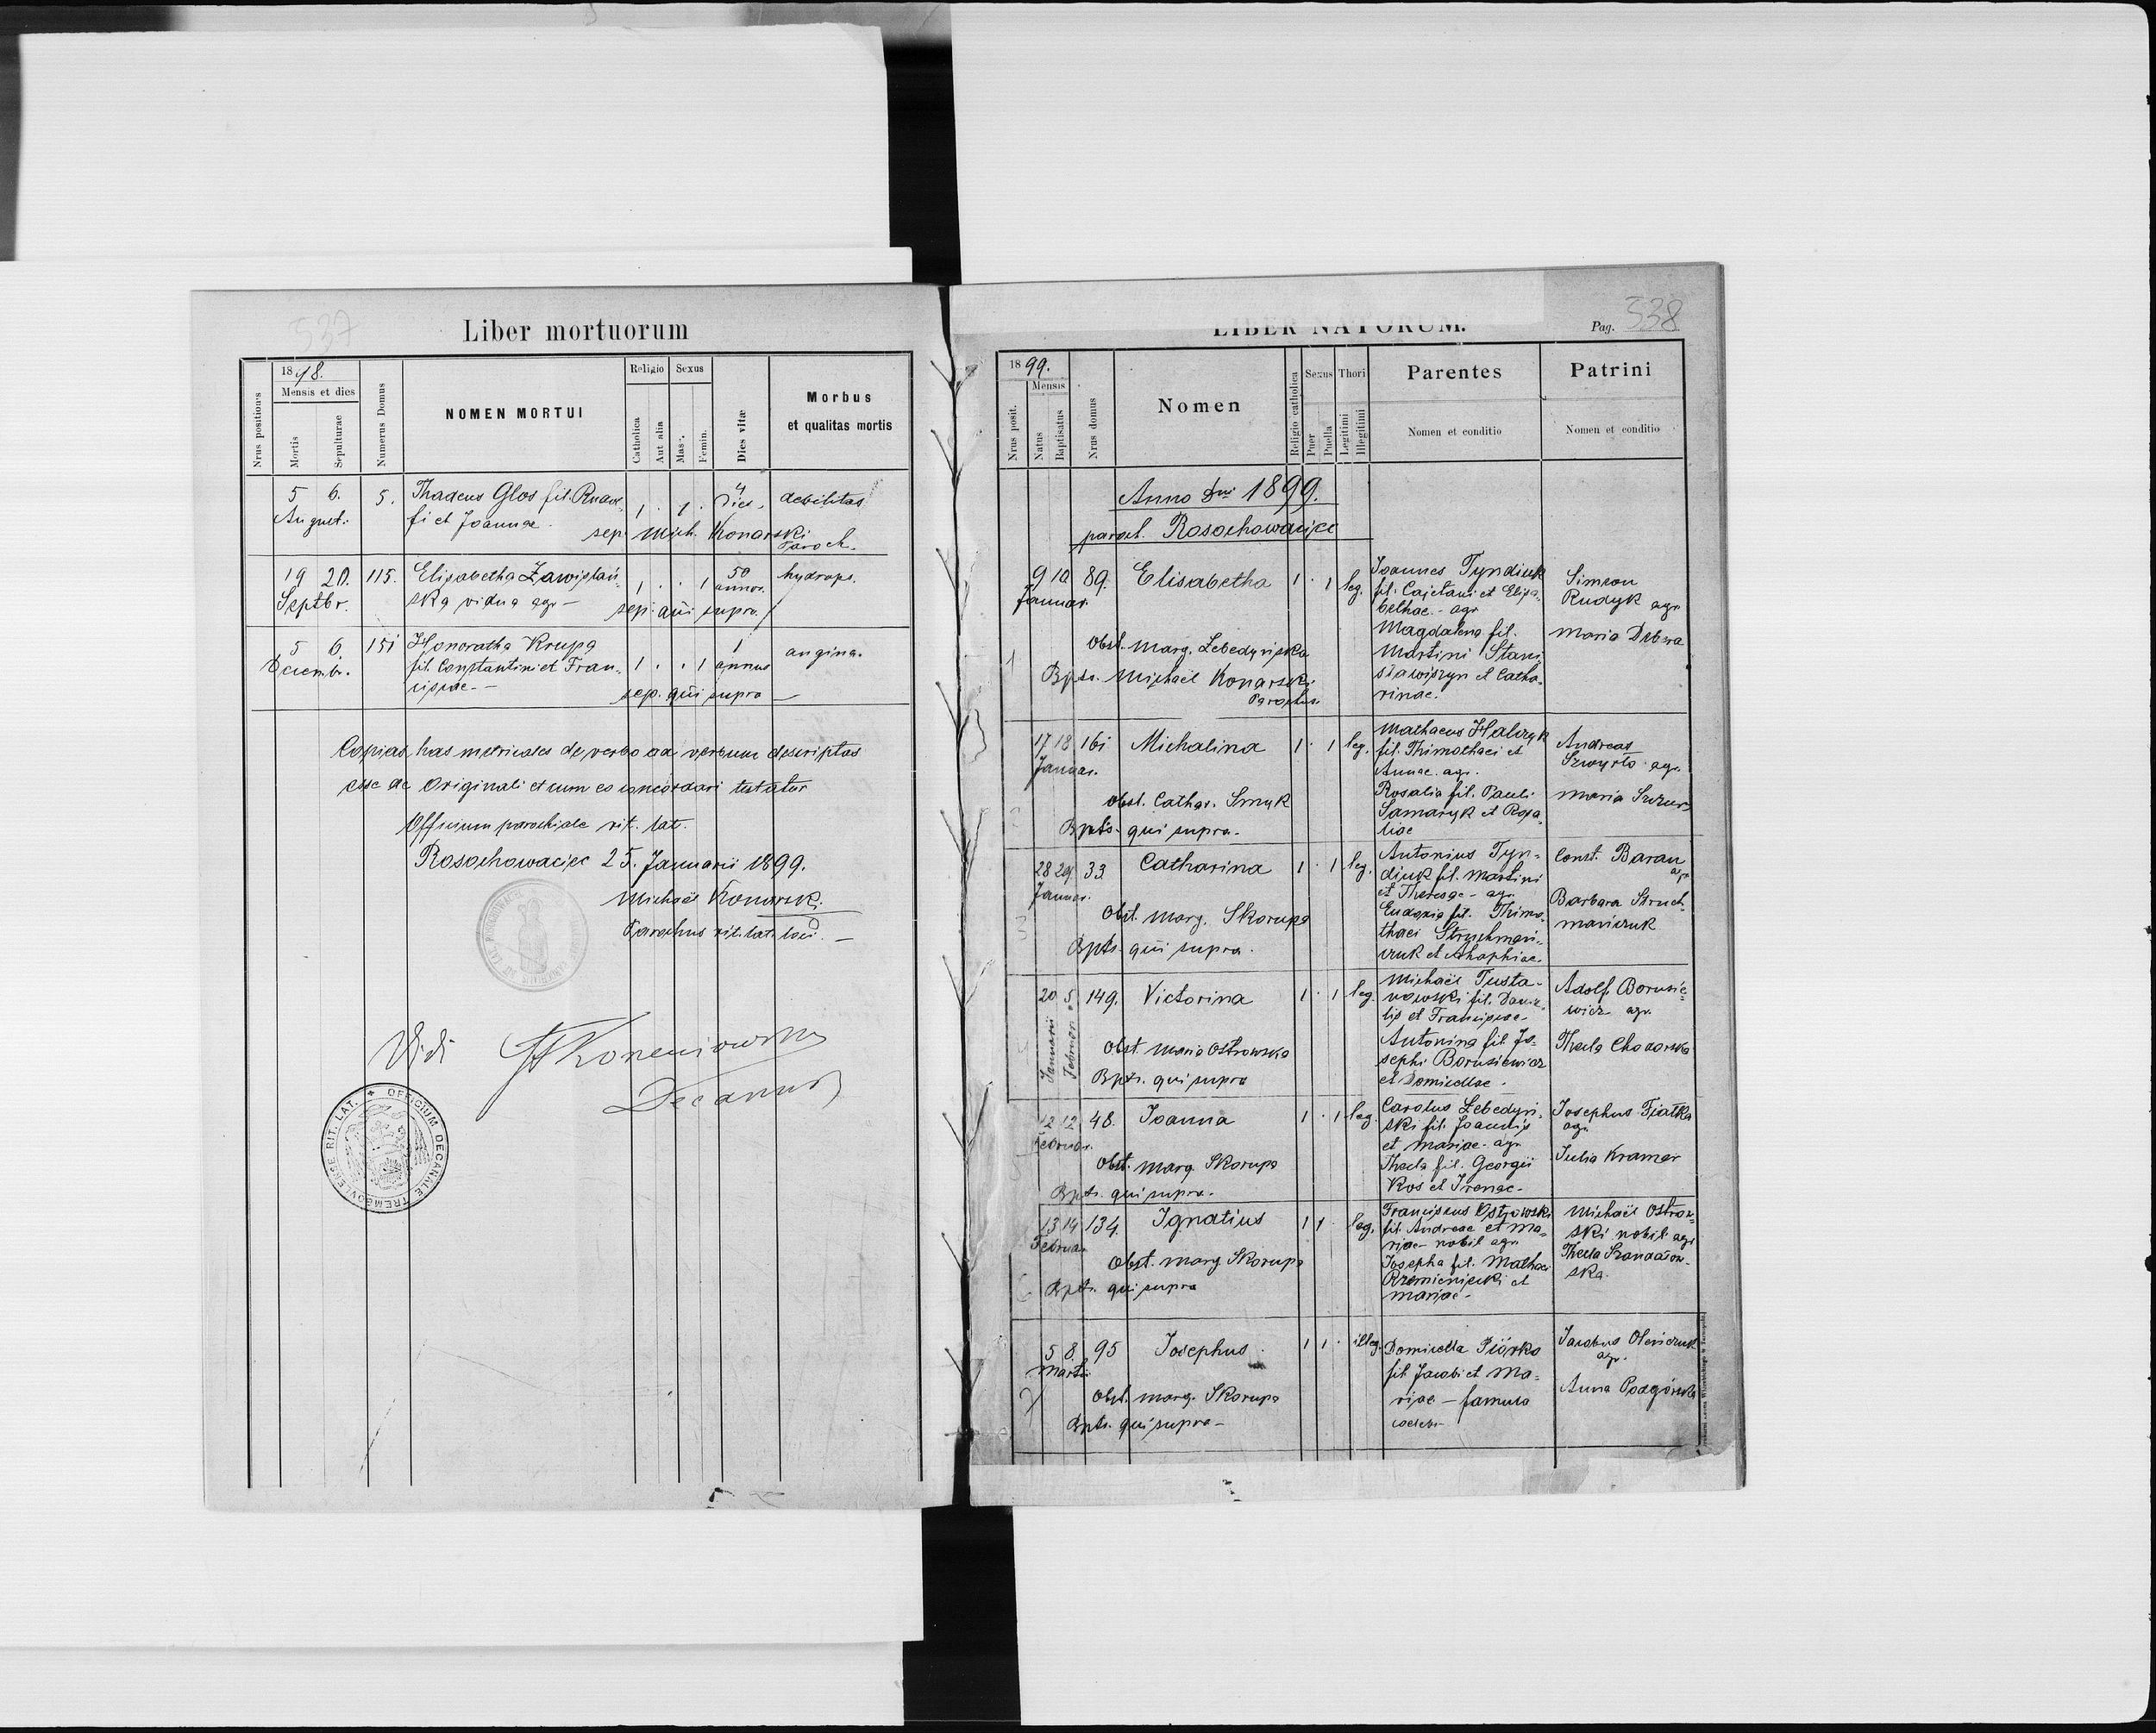 537
Liber mortuorum
1898.
Mensis et dies
Nrus positionis
Mortis
Sepulturae
Numerus Domus
NOMEN MORTUI
Religio
Sexus
Catholica
Aut alia
Mas.
Femin.
Dies vitæ
Morbus
et qualitas mortis
5 6. 5. Thadeus Glos fil.
August. fi et Joannae
1 . 1 . 4 Dies. debilitas
sep. Mich. Konarski
Paroch.
19 20. 115. Elisabetha
Septbr. ska vidua agr -
1 . . 1 50 annor. hydrops.
sep. qui supra.
5 6. 151 Honoratha Krupa
Decembr. fil. Constantini et Fran-
ciscae -
1 . . 1 1 annus angina.
sep. qui supra -
Copias has metricales de verbo ad verbum descriptas
esse de Originali et cum eo concordari testatur
Officium parochiale rit. lat.
Rosochowaciec 25. Januarii 1899.
Michaël Konarski
Parochus rit. lat. loci. -
Vidi
Decanus
OFFICIUM DECANALE TREMBOVLENSE RIT. LAT.
LIBER NATORUM.
Pag. 538
1899.
Mensis
Nrus posit.
Natus
Baptisatus
Nrus domus
Nomen
Religio catholica
Sexus
Puer
Puella
Thori
Legitimi
Illegitimi
Parentes
Nomen et conditio
Patrini
Nomen et conditio
Anno Dni 1899.
paroch. Rosochowaciec
1
9 10 89. Elisabetha 1 . 1 leg.
Januar.
Joannes Tyndiuk
fil. Cajetani et Elisa-
bethae - agr
Magdalena fil.
Martini Stani
sławiszyn et Catha-
rinae.
Simeon
Rudyk agr.
Maria
Obst. Marg. Lebedynska
Bpts. Michaël Konarski
Parochus
2
17 18 161 Michalina 1 . 1 leg.
Januar.
Mathaeus Halczyk
fil. Thimothaei et
Annae. agr.
Rosalia fil. Pauli
Samaryk et Rosa-
liae
Andreas
agr.
Maria
Obst. Cathar. Smyk
Bpts. qui supra.
3
28 29 33 Catharina 1 . 1 leg.
Januar.
Antonius Tyn-
diuk fil. Martini
et Theresae - agr.
Eudoxia fil. Thimo-
thaei
czuk et
Const. Baran
agr
Barbara Struch-
mańczuk
Obst. Marg. Skorupa
Bpts. qui supra.
4
20 5 149. Victorina 1 . 1 leg.
Januarii
Februar
Michaël Tusta-
nowski fil. Danie-
lis et Franciscae -
Antonina fil. Jo-
sephi Borusiewicz
et Domicellae.
Adolf Borusie-
wicz agr.
Thecla
Obst. Maria Ostrowska
Bpts. qui supra
5
12 12 48. Joanna 1 . 1 leg.
Februar.
Carolus Lebedyn-
ski fil. Joannis
et Mariae - agr.
Thecla fil. Georgii
Kos et Irenae -
Josephus Fiałka
agr.
Julia Kramar
Obst. Marg Skorupa
Bpts. qui supra.
6
13 14 134 Ignatius 1 1 . leg.
Februar
Franciscus Ostrowski
fil. Andreae et Ma-
riae - nobil agr
Josepha fil. Mathaei
Krzemienieski et
Mariae -
Michaël Ostrow-
ski nobil agr
Thecla
ska.
Obst. Marg Skorupa
Bpts. qui supra
7
5 8. 95 Josephus 1 1 . illeg.
Martii
Domicella Piórko
fil Jacobi et Ma-
riae - famula
caelebs
Jacobus
agr.
Anna Podgórska
Obst. Marg. Skorupa
Bpts. qui supra -